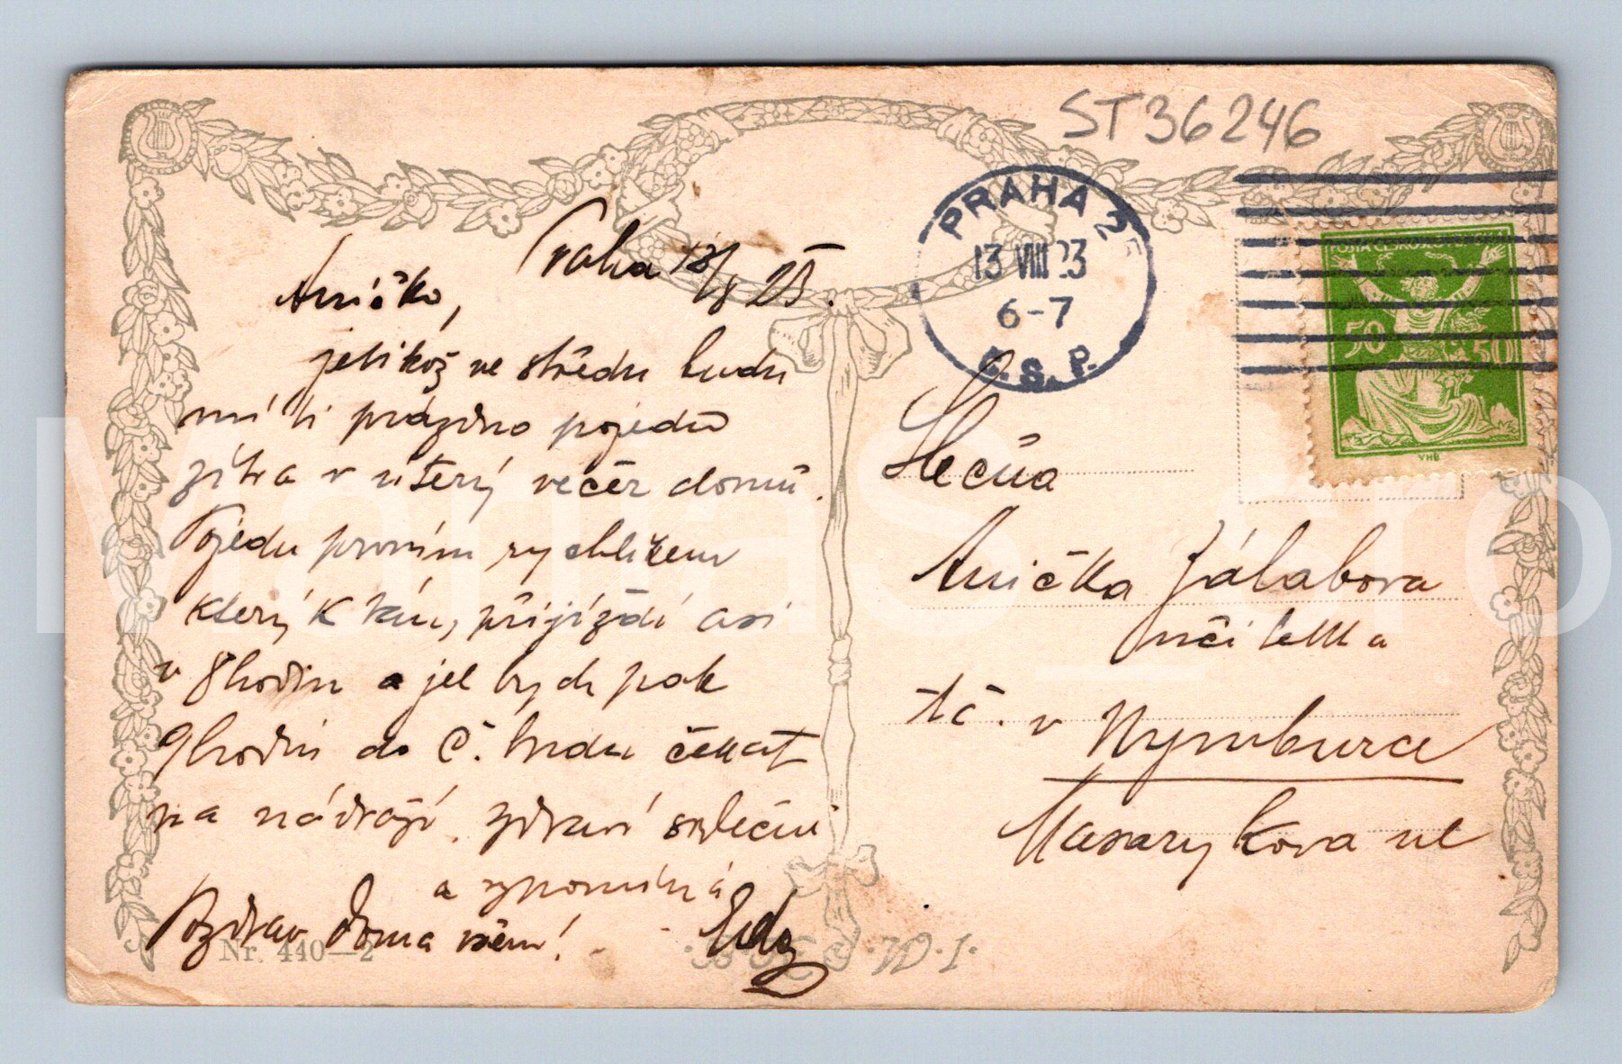 ST36246
PRAHA 2
13 VIII 23
6-7
Č.S.P.
POŠTA ČESKOSLOVENSKÁ
50 50
VHB
Praha 13/8 23.
Aničko,
jelikož ve středu budu
míti prázdno pojedu
zítra v úterý večer domů.
Pojedu prvním rychlíkem
který k vám přijíždí asi
v 8 hodin a jel bych pak
9 hodin do Č. budu čekat
na nádraží. zdraví srdečně
a vzpomíná
Pozdrav doma všem!
Slečna
Anička Zálabova
učitelka
t.č. v Nymburce
Masarykova ul
Nr. 440-2
W.I.